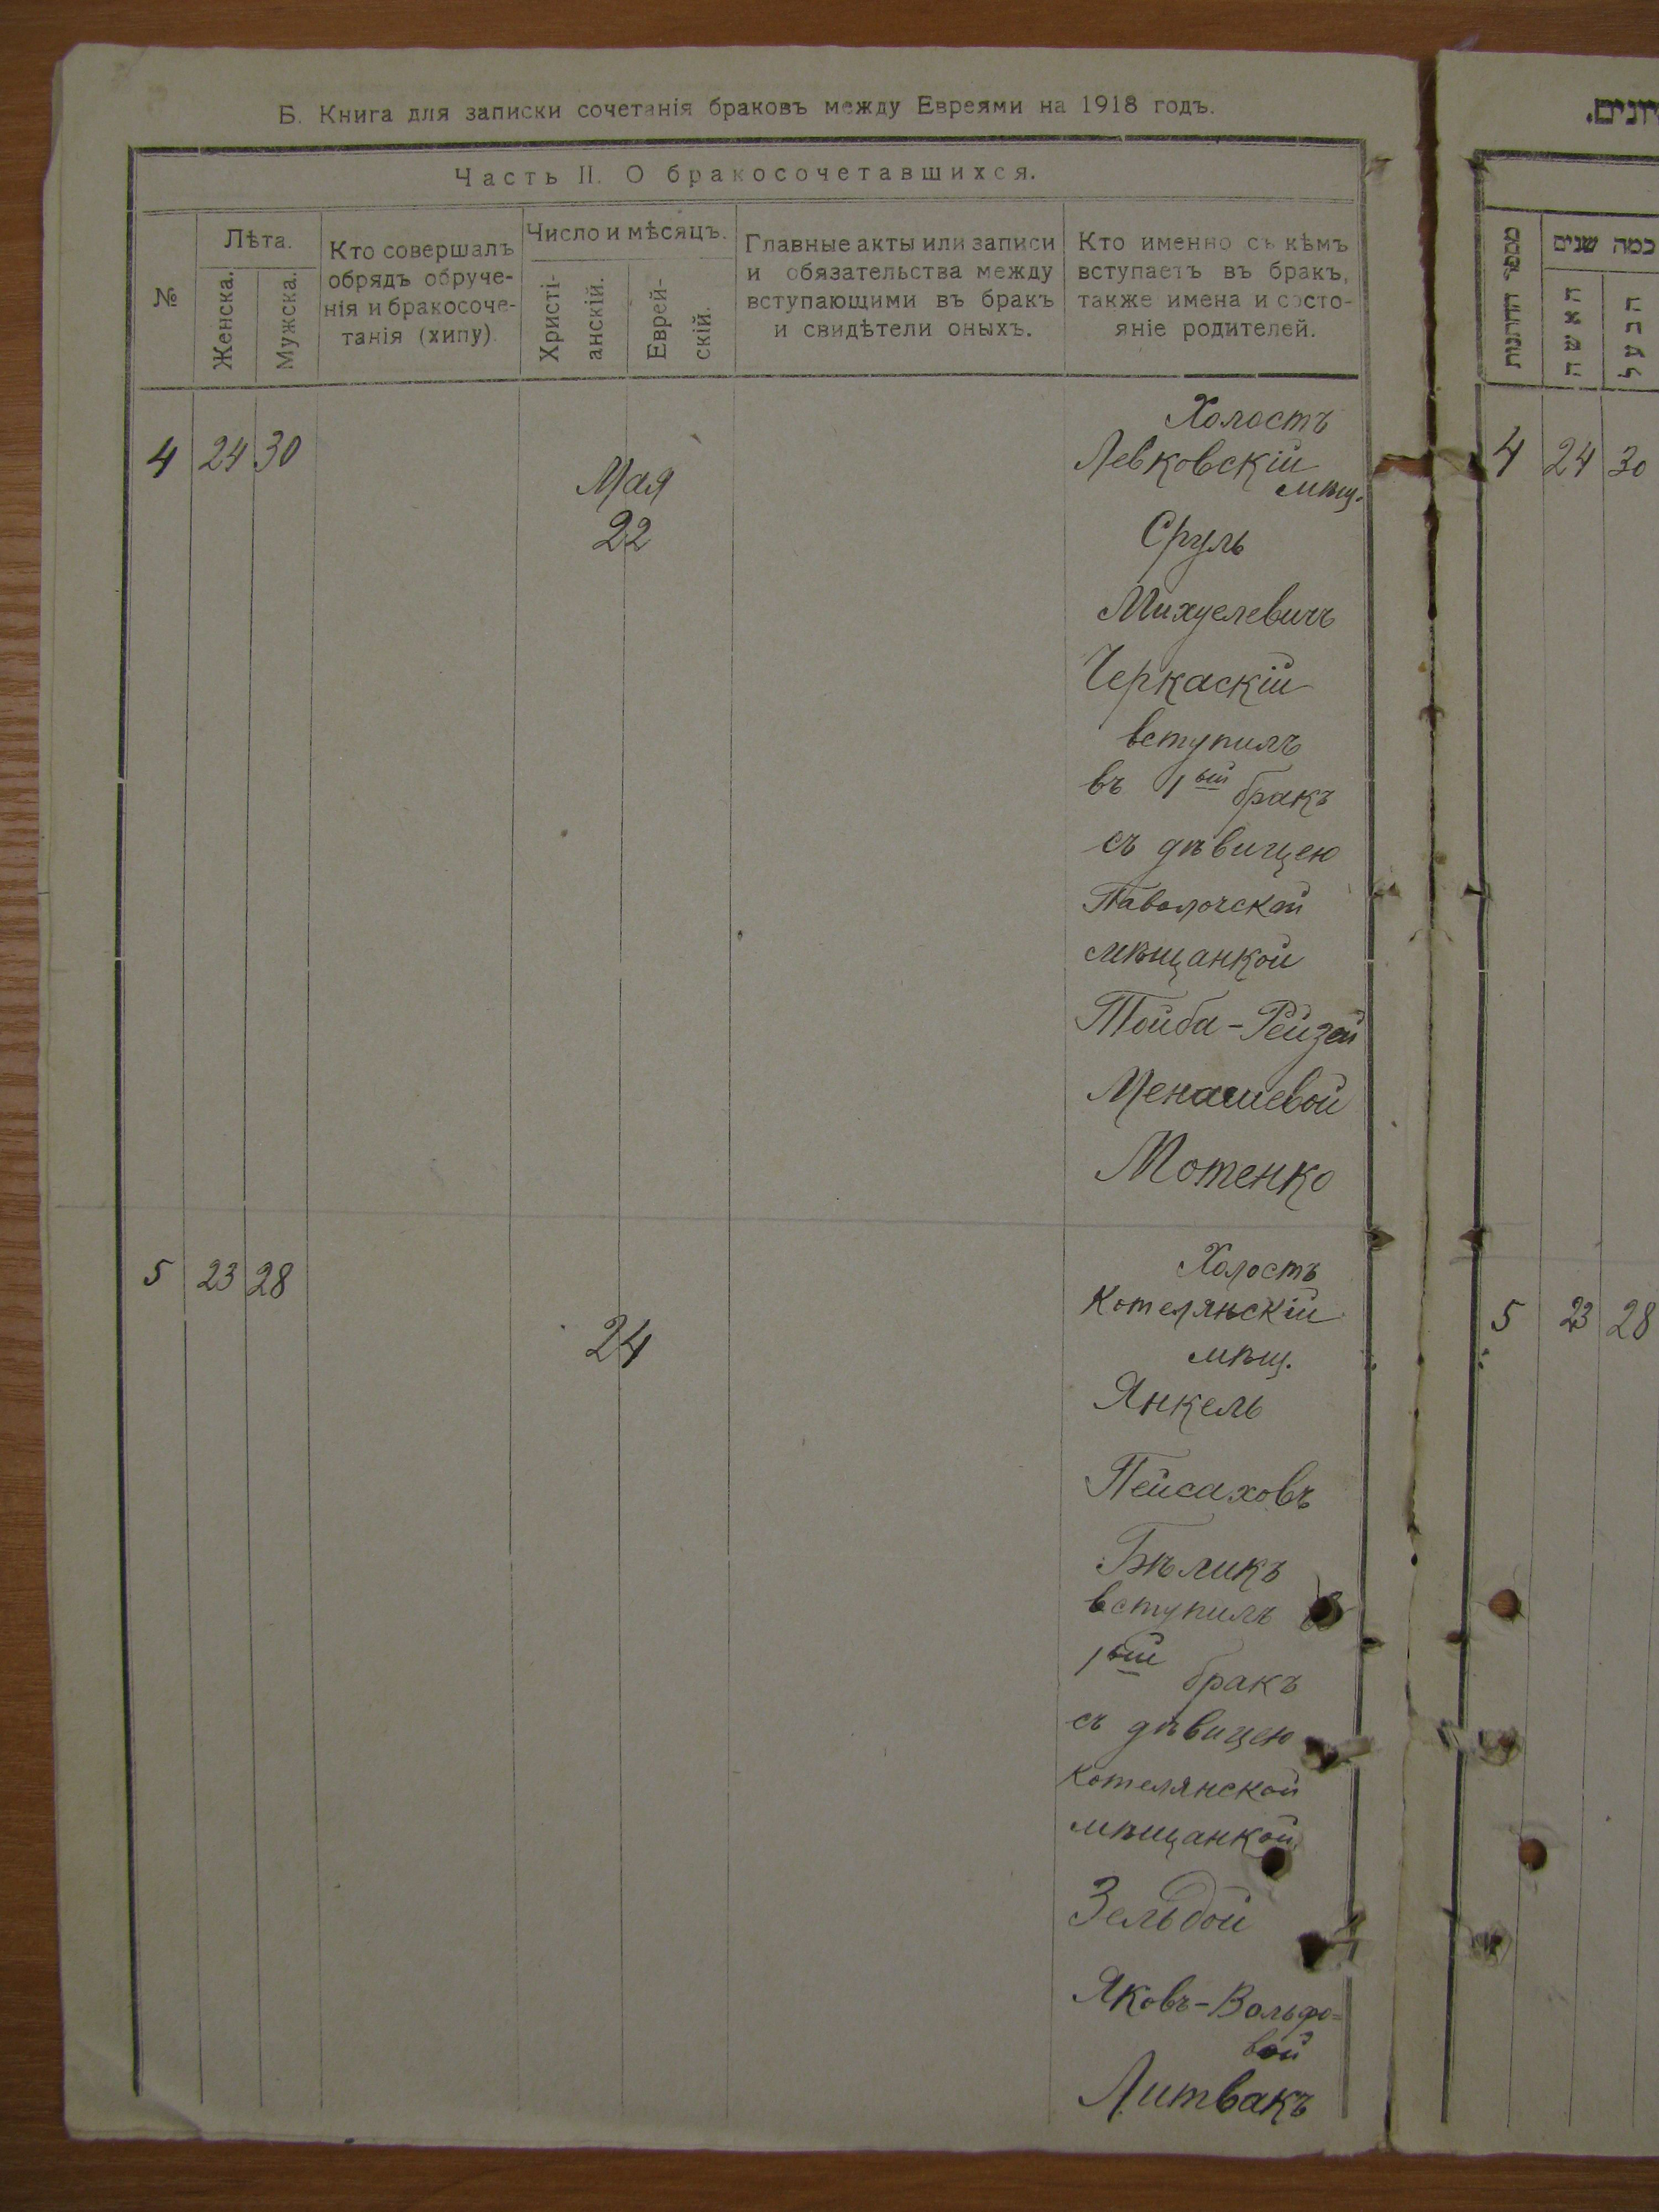 Б. Книга для записки сочетанія браковъ между Евреями на 1918 годъ.
Часть II. О бракосочетавшихся.
№
Лѣта.
Женска.
Мужска.
Кто совершалъ
обрядъ обруче-
нія и бракосоче-
танія (хипу).
Число и мѣсяцъ.
Христі-
анскій.
Еврей-
скій.
Главные акты или записи
и обязательства между
вступающими въ бракъ
и свидѣтели оныхъ.
Кто именно съ кѣмъ
вступаетъ въ бракъ,
также имена и состо-
яніе родителей.
4 24 30
Мая
22
Холостъ
Левковскій
мѣщ.
Сруль
Михуелевичъ
Черкаскій
вступилъ
въ 1ый бракъ
съ дѣвицею
Паволочской
мѣщанкой
Тойба-Рейзей
Менашевой
Мотенко
5 23 28
24
Холостъ
Котелянскій
мѣщ.
Янкель
Пейсаховъ
Бѣликъ
вступилъ въ
1ый бракъ
съ дѣвицею
Котелянской
мѣщанкой
Зельдой
Яковъ-Вольфо=
вой
Литвакъ
כמה שנים
האשה
הבעל
4 24 30
5 23 28